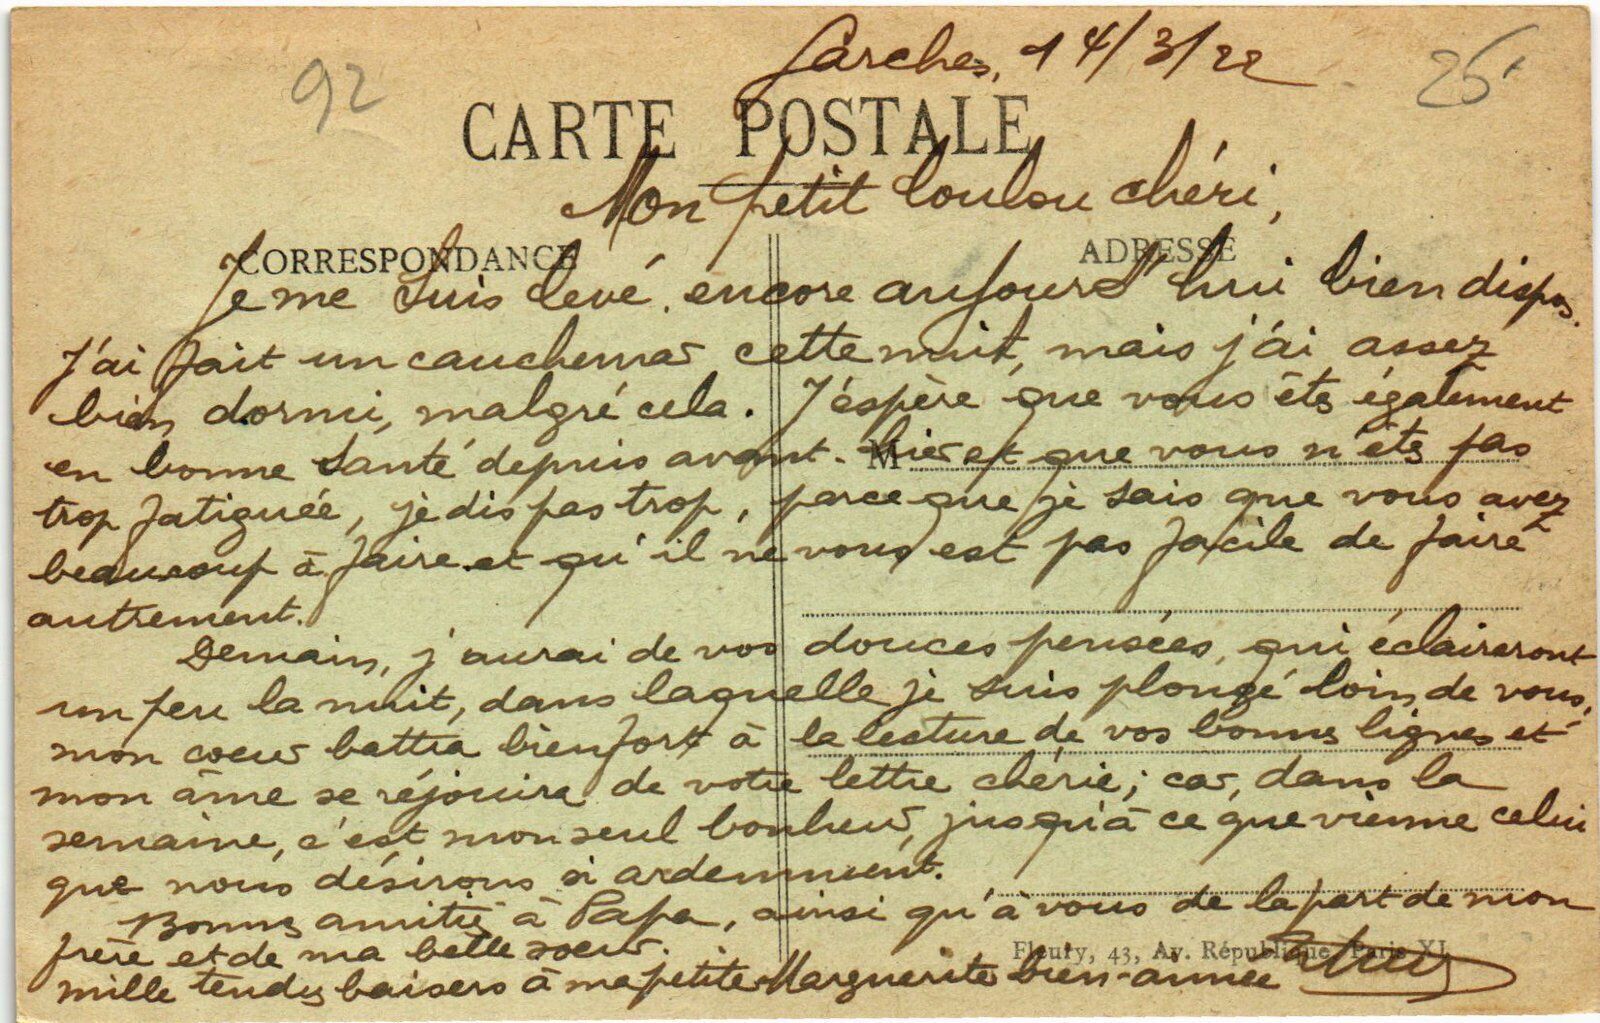 Garches, 14/3/22
92
25
CARTE POSTALE
Mon petit loulou chéri,
CORRESPONDANCE
ADRESSE
Je me suis levé encore aujourd'hui bien dispos.
J'ai fait un cauchemar cette nuit, mais j'ai assez
bien dormi, malgré cela. J'éspère que vous êtes également
en bonne santé depuis avant-hier et que vous n'êtes pas
M
trop fatiguée, je dis pas trop, parce que je sais que vous avez
beaucoup à faire et qu'il ne vous est pas facile de faire
autrement.
Demain, j'aurai de vos douces pensées, qui éclaireront
un peu la nuit, dans laquelle je suis plongé loin de vous,
mon coeur battra bien fort à la lecture de vos bonnes lignes et
mon âme se réjouira de votre lettre chérie; car, dans la
semaine, c'est mon seul bonheur, jusqu'à ce que vienne celui
que nous désirons si ardemment.
Bonnes amitiés à Papa, ainsi qu'à vous de la part de mon
frère et de ma belle soeur.
Fleury, 43, Av. République, Paris XI
mille tendres baisers à ma petite Marguerite bien-aimée